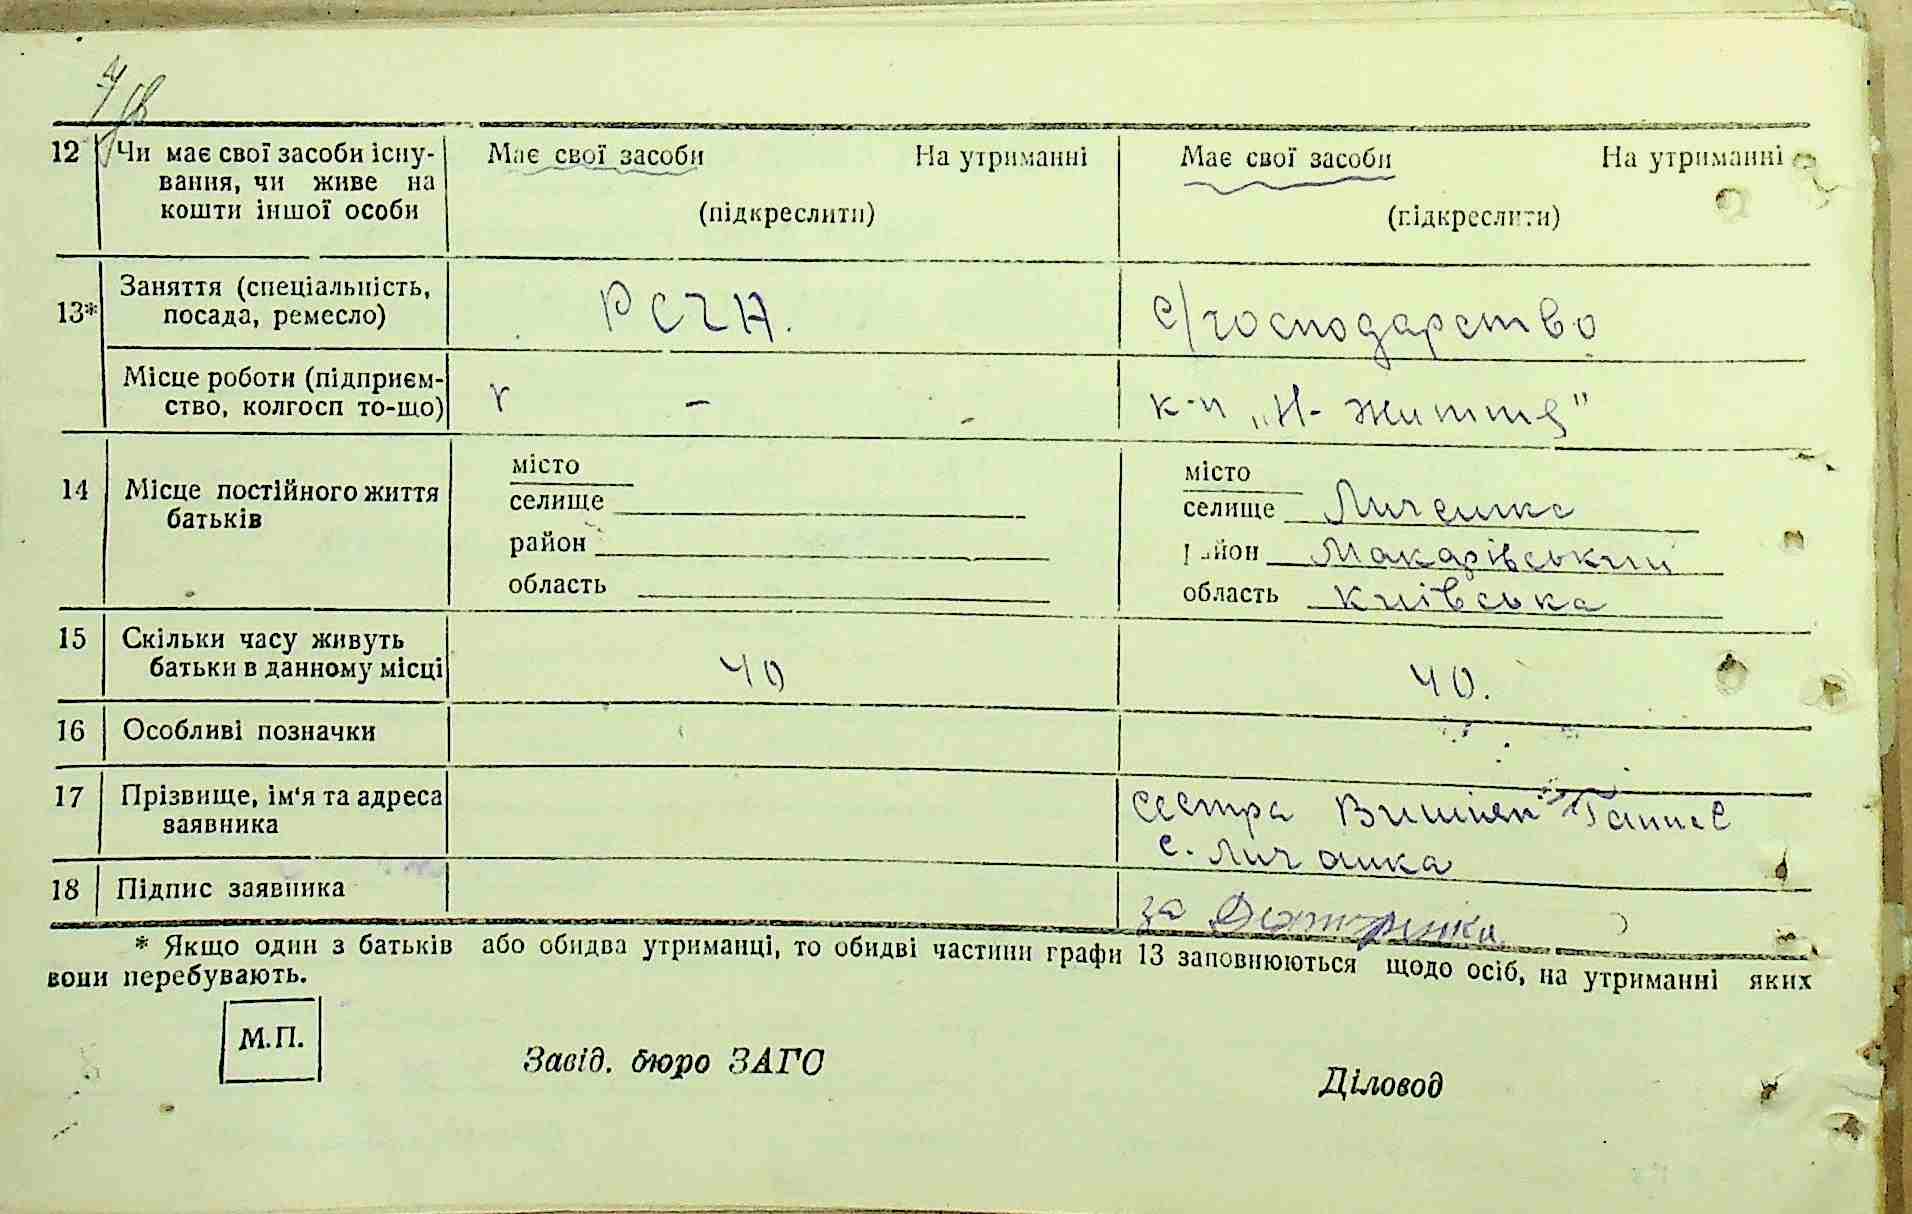 12 Чи має свої засоби існу-
вання, чи живе на
кошти іншої особи
Має свої засоби На утриманні
(підкреслити)
Має свої засоби На утриманні
(підкреслити)
13* Заняття (спеціальність,
посада, ремесло)
РСЧА.
с/господарство
Місце роботи (підприєм-
ство, колгосп то-що)
–
к-п „Н-життя"
14 Місце постійного життя
батьків
місто
селище
район
область
місто
селище Личанка
район Макарівський
область Київська
15 Скільки часу живуть
батьки в данному місці
40
40.
16 Особливі позначки
17 Прізвище, ім'я та адреса
заявника
сестра Ганна
с. Личанка
18 Підпис заявника
за
* Якщо один з батьків або обидва утриманці, то обидві частини графи 13 заповнюються щодо осіб, на утриманні яких
вони перебувають.
М.П.
Завід. бюро ЗАГС
Діловод